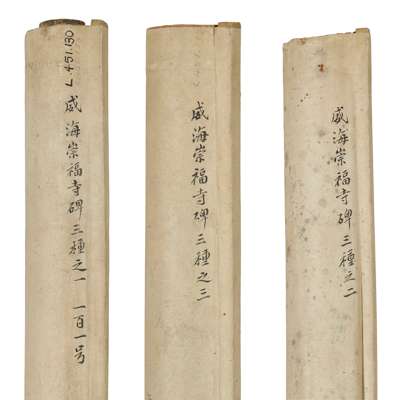 L.451.130
威海崇福寺碑三種之一 一百一号
威海崇福寺碑三種之三
威海崇福寺碑三種之二